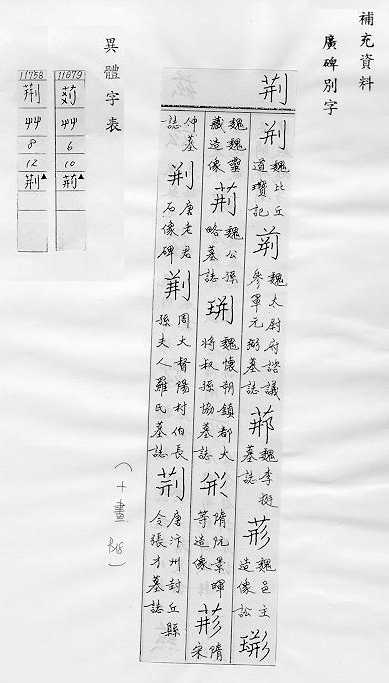 補充資料
廣碑別字
荆
荆 魏比丘道瓚記 荊 魏太尉府諮議參軍元弼墓誌 魏李挺墓誌 魏邑主造像訟
魏魏靈藏造像 荆 魏公孫略墓誌 魏懷朔鎮都大將叔孫協墓誌 隋阮景暉等造像 隋宋
仲墓誌 荆 唐老君石像碑 荆 周大督陽村伯長孫夫人羅氏墓誌 荆 唐汴州封丘縣令張才墓誌
（十畫 ）
異體字表
11679 艸 6 10 荊▲
11758 荆 艸 8 12 荆▲